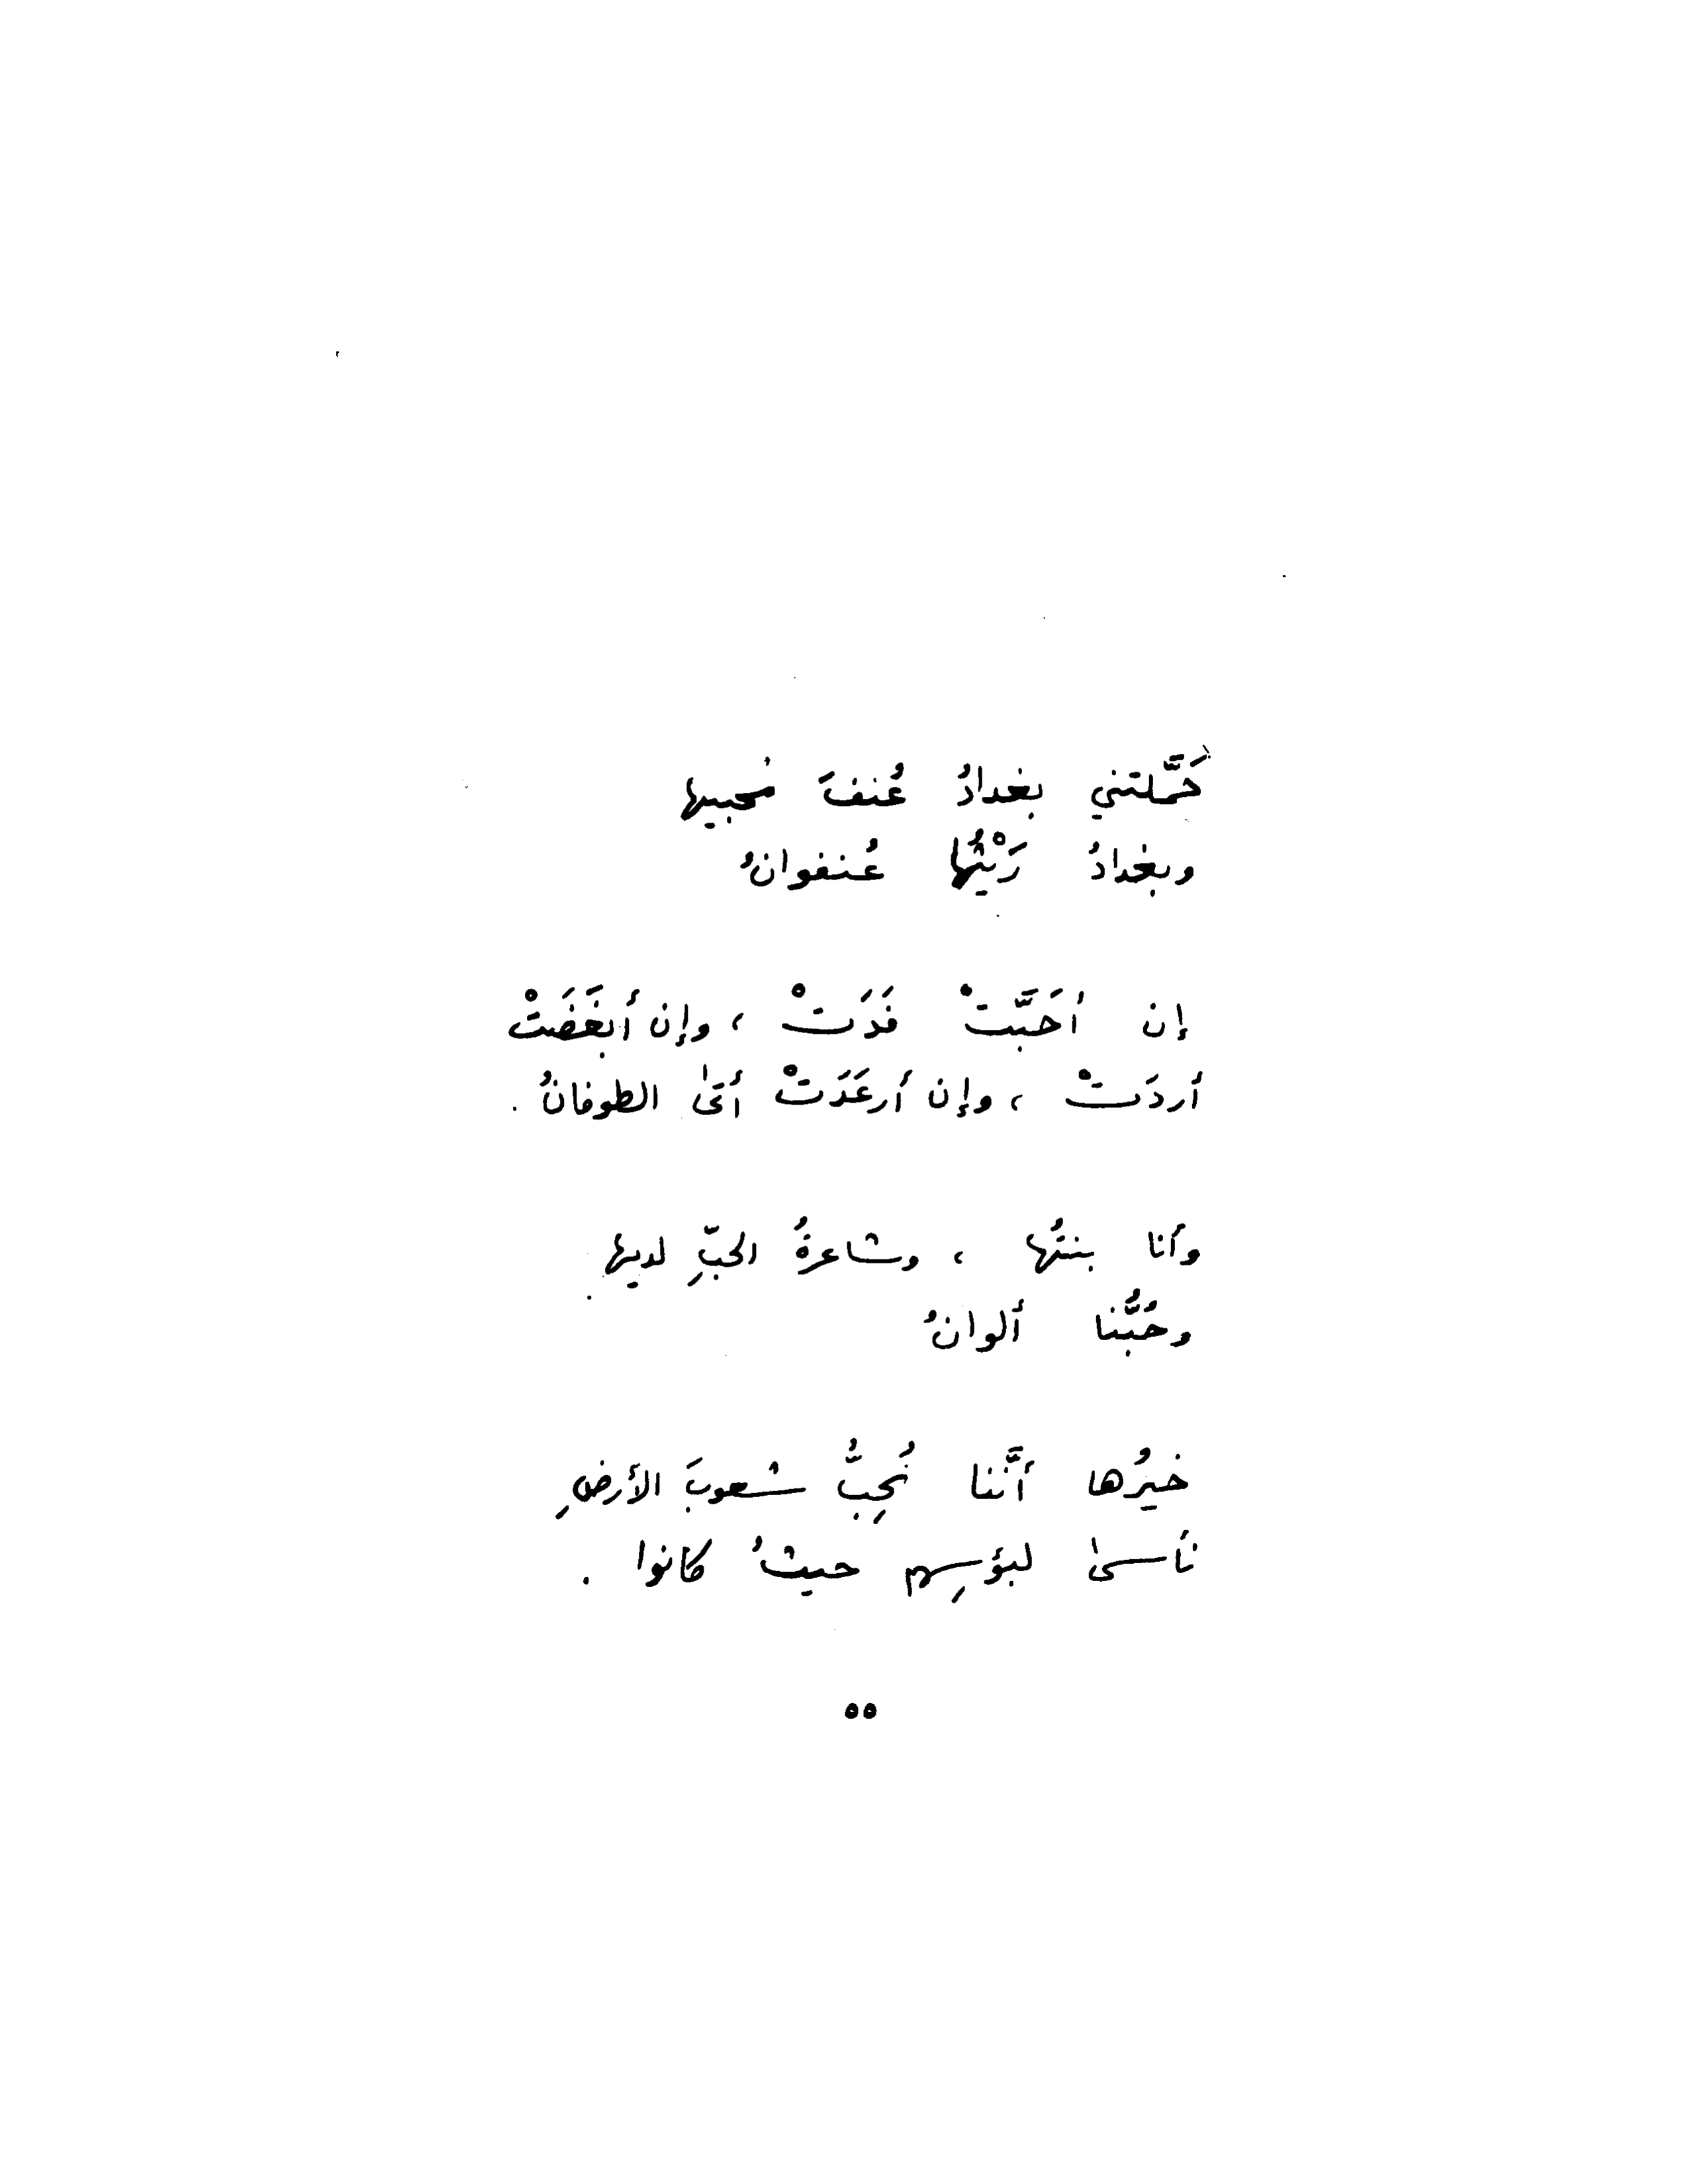 حَمَّلتني بغدادُ عُنفَ مُحبيها
وبغدادُ رَيْثُها عُنفوانُ
إن أحَبَّتْ فَدَتْ ، وإن أبغَضَتْ
أردَتْ ، وإن أرعَدَتْ أتىٰ الطوفانُ .
وأنا بنتُها ، وشاعرةُ الحبِّ لديها
وحُبُّنا ألوانُ
خيرُها أنَّنا نُحِبُّ شعوبَ الأرضِ
نأسىٰ لبؤسِهم حيثُ كانوا .
٥٥